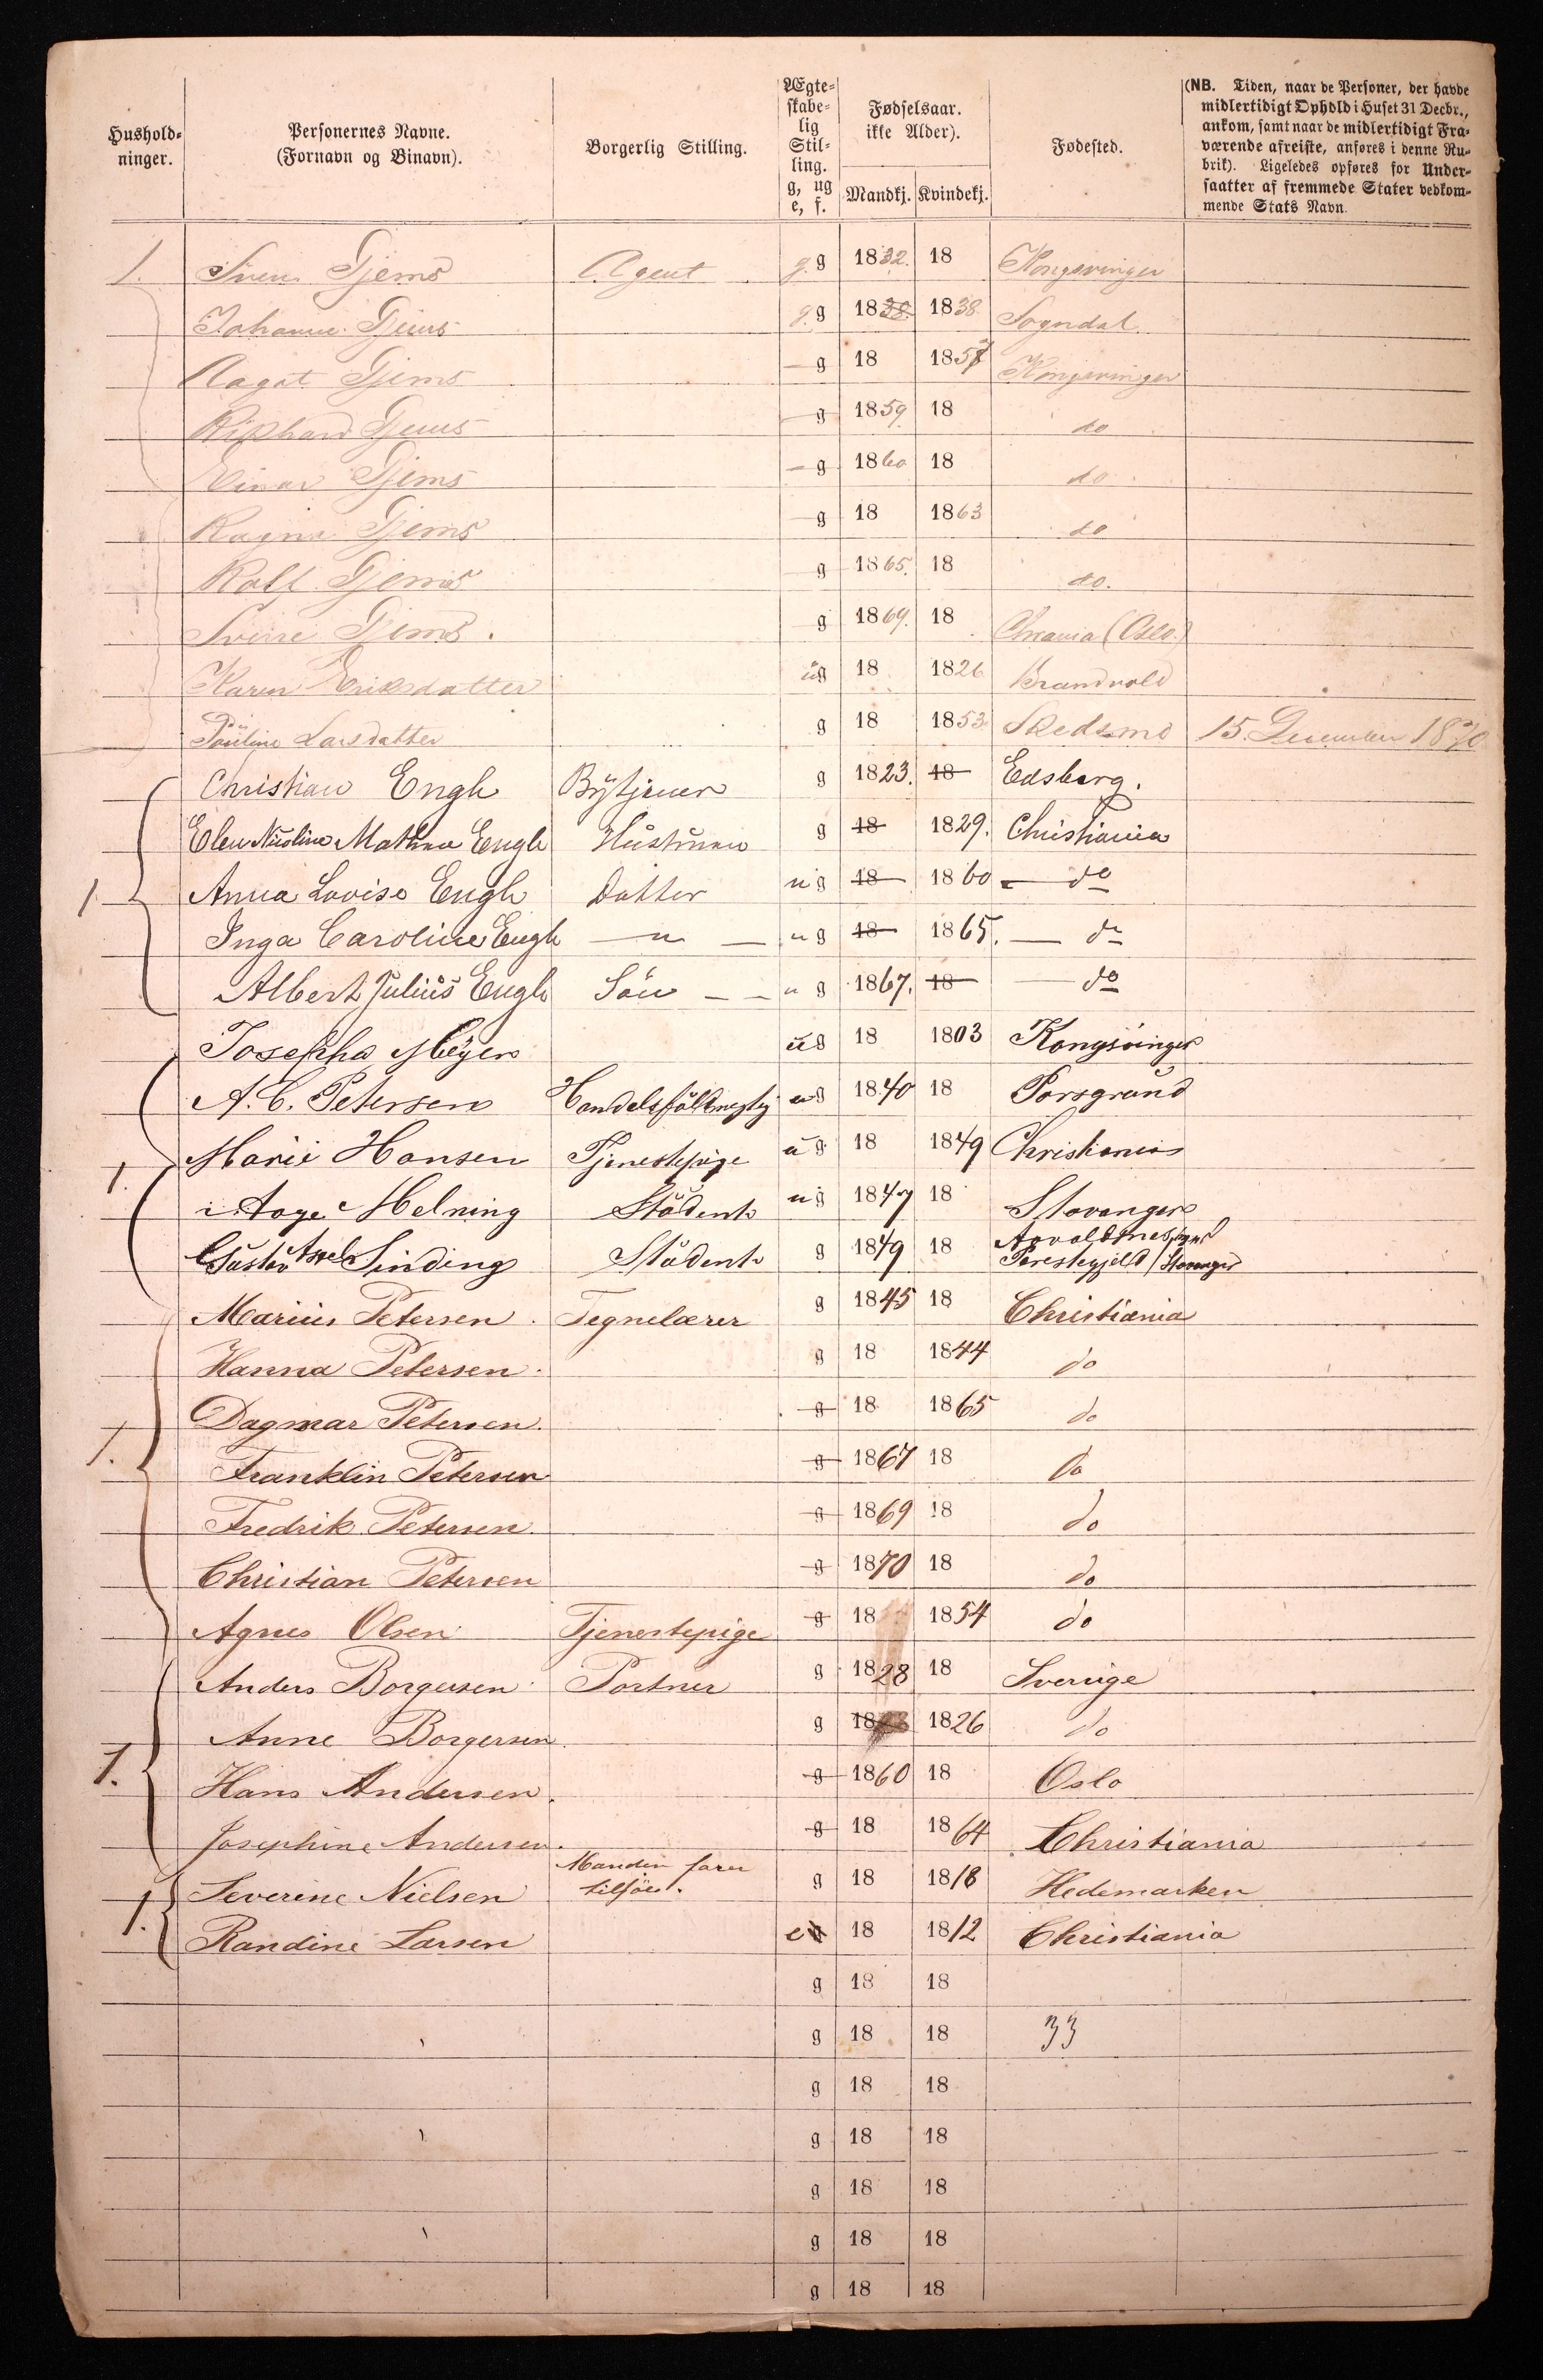 Hushold-
ninger.
Personernes Navne.
(Fornavn og Binavn).
Borgerlig Stilling.
Ægte-
skabe-
lig
Stil-
ling.
g, ug
e, f.
Fødselsaar.
ikke Alder).
Mandkj. Kvindekj.
Fødested.
(NB. Tiden, naar de Personer, der havde
midlertidigt Ophold i Huset 31 Decbr.,
ankom, samt naar de midlertidigt Fra-
værende afreiste, anføres i denne Ru-
brik). Ligeledes opføres for Under-
saatter af fremmede Stater vedkom-
mende Stats Navn.
1. Sven Gjems Agent g. g 1832. 18 Kongsvinger
Johanne Gjems g. g 1838. 1838 Sogndal.
Aagot Gjems g 18 1857 Kongsvinger
Gjems g 1859 18 do
Einar Gjems g 1860 18 do
Ragna Gjems g 18 1863 do
Rolf Gjems g 1865. 18 do.
Sverre Gjems. g 1869. 18 Chrania (Oslo.)
Karen Eriksdatter ug 18 1826 Brandvold
Pauline Larsdatter g 18 1853 Skedsmo 15. December 1870
Christian Engh Bytjener g 1823. 18 Edsberg.
Elen Nicoline Mathea Engh Hustru g 18 1829. Christiania
1 Anna Lovise Engh Datter ug 18 1860 - do
Inga Caroline Engh — " — ug 18 1865. — do
Albert Julius Engh Sön — — " g 1867. 18 — do
Josepha Meyer ug 18 1803 Kongsvinger
A. C. Petersen Handelsfuldmegtig ug 1840 18 Porsgrund
Marie Hansen Tjenestepige ug 18 1849 Christiania
1. Aage Melning Student ug 1847 18 Stavanger
Gustav Axel Sinding Student g 1849 18
Prestegjeld / Stavanger
Marius Petersen. Tegnelærer g 1845 18 Christiania
Hanna Petersen. g 18 1844 do
Dagmar Petersen. g 18 1865 do
1. Franklin Petersen g 1867 18 do
Fredrik Petersen. g 1869 18 do
Christian Petersen g 1870 18 do
Agnes Olsen Tjenestepige g 18 1854 do
Anders Borgersen Portner g 1828 18 Sverige
Anne Borgersen. g 18 1826 do
1. Hans Andersen. g 1860 18 Oslo
Josephine Andersen. g 18 1864 Christiania
Manden farer
Severine Nielsen tilsøes. g 18 1818 Hedemarken
1. Randine Larsen e g 18 1812 Christiania
g 18 18
g 18 18 33
g 18 18
g 18 18
g 18 18
g 18 18
g 18 18